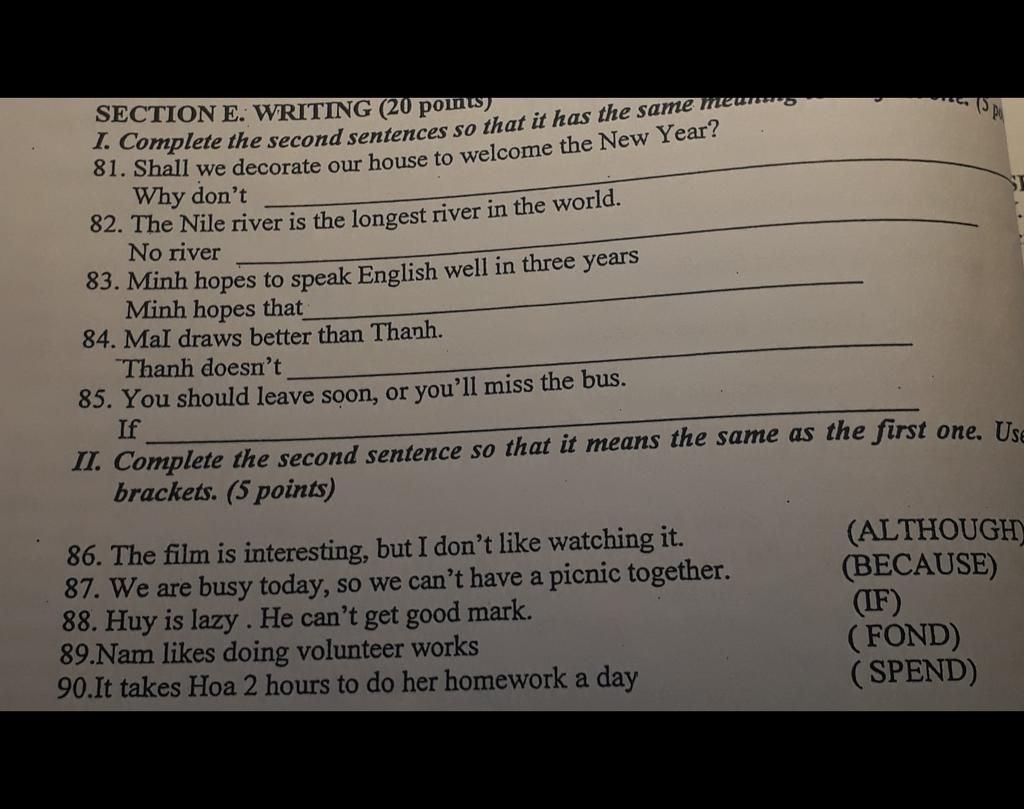 SECTION E. WRITING (20 points)
I. Complete the second sentences so that it has the same meaning (5
81. Shall we decorate our house to welcome the New Year?
Why don't
82. The Nile river is the longest river in the world.
No river
83. Minh hopes to speak English well in three years
Minh hopes that
84. MaI draws better than Thanh.
Thanh doesn't
85. You should leave soon, or you'll miss the bus.
If
II. Complete the second sentence so that it means the same as the first one. Use
brackets. (5 points)
86. The film is interesting, but I don't like watching it. (ALTHOUGH)
87. We are busy today, so we can't have a picnic together. (BECAUSE)
88. Huy is lazy . He can't get good mark. (IF)
89.Nam likes doing volunteer works ( FOND)
90.It takes Hoa 2 hours to do her homework a day ( SPEND)